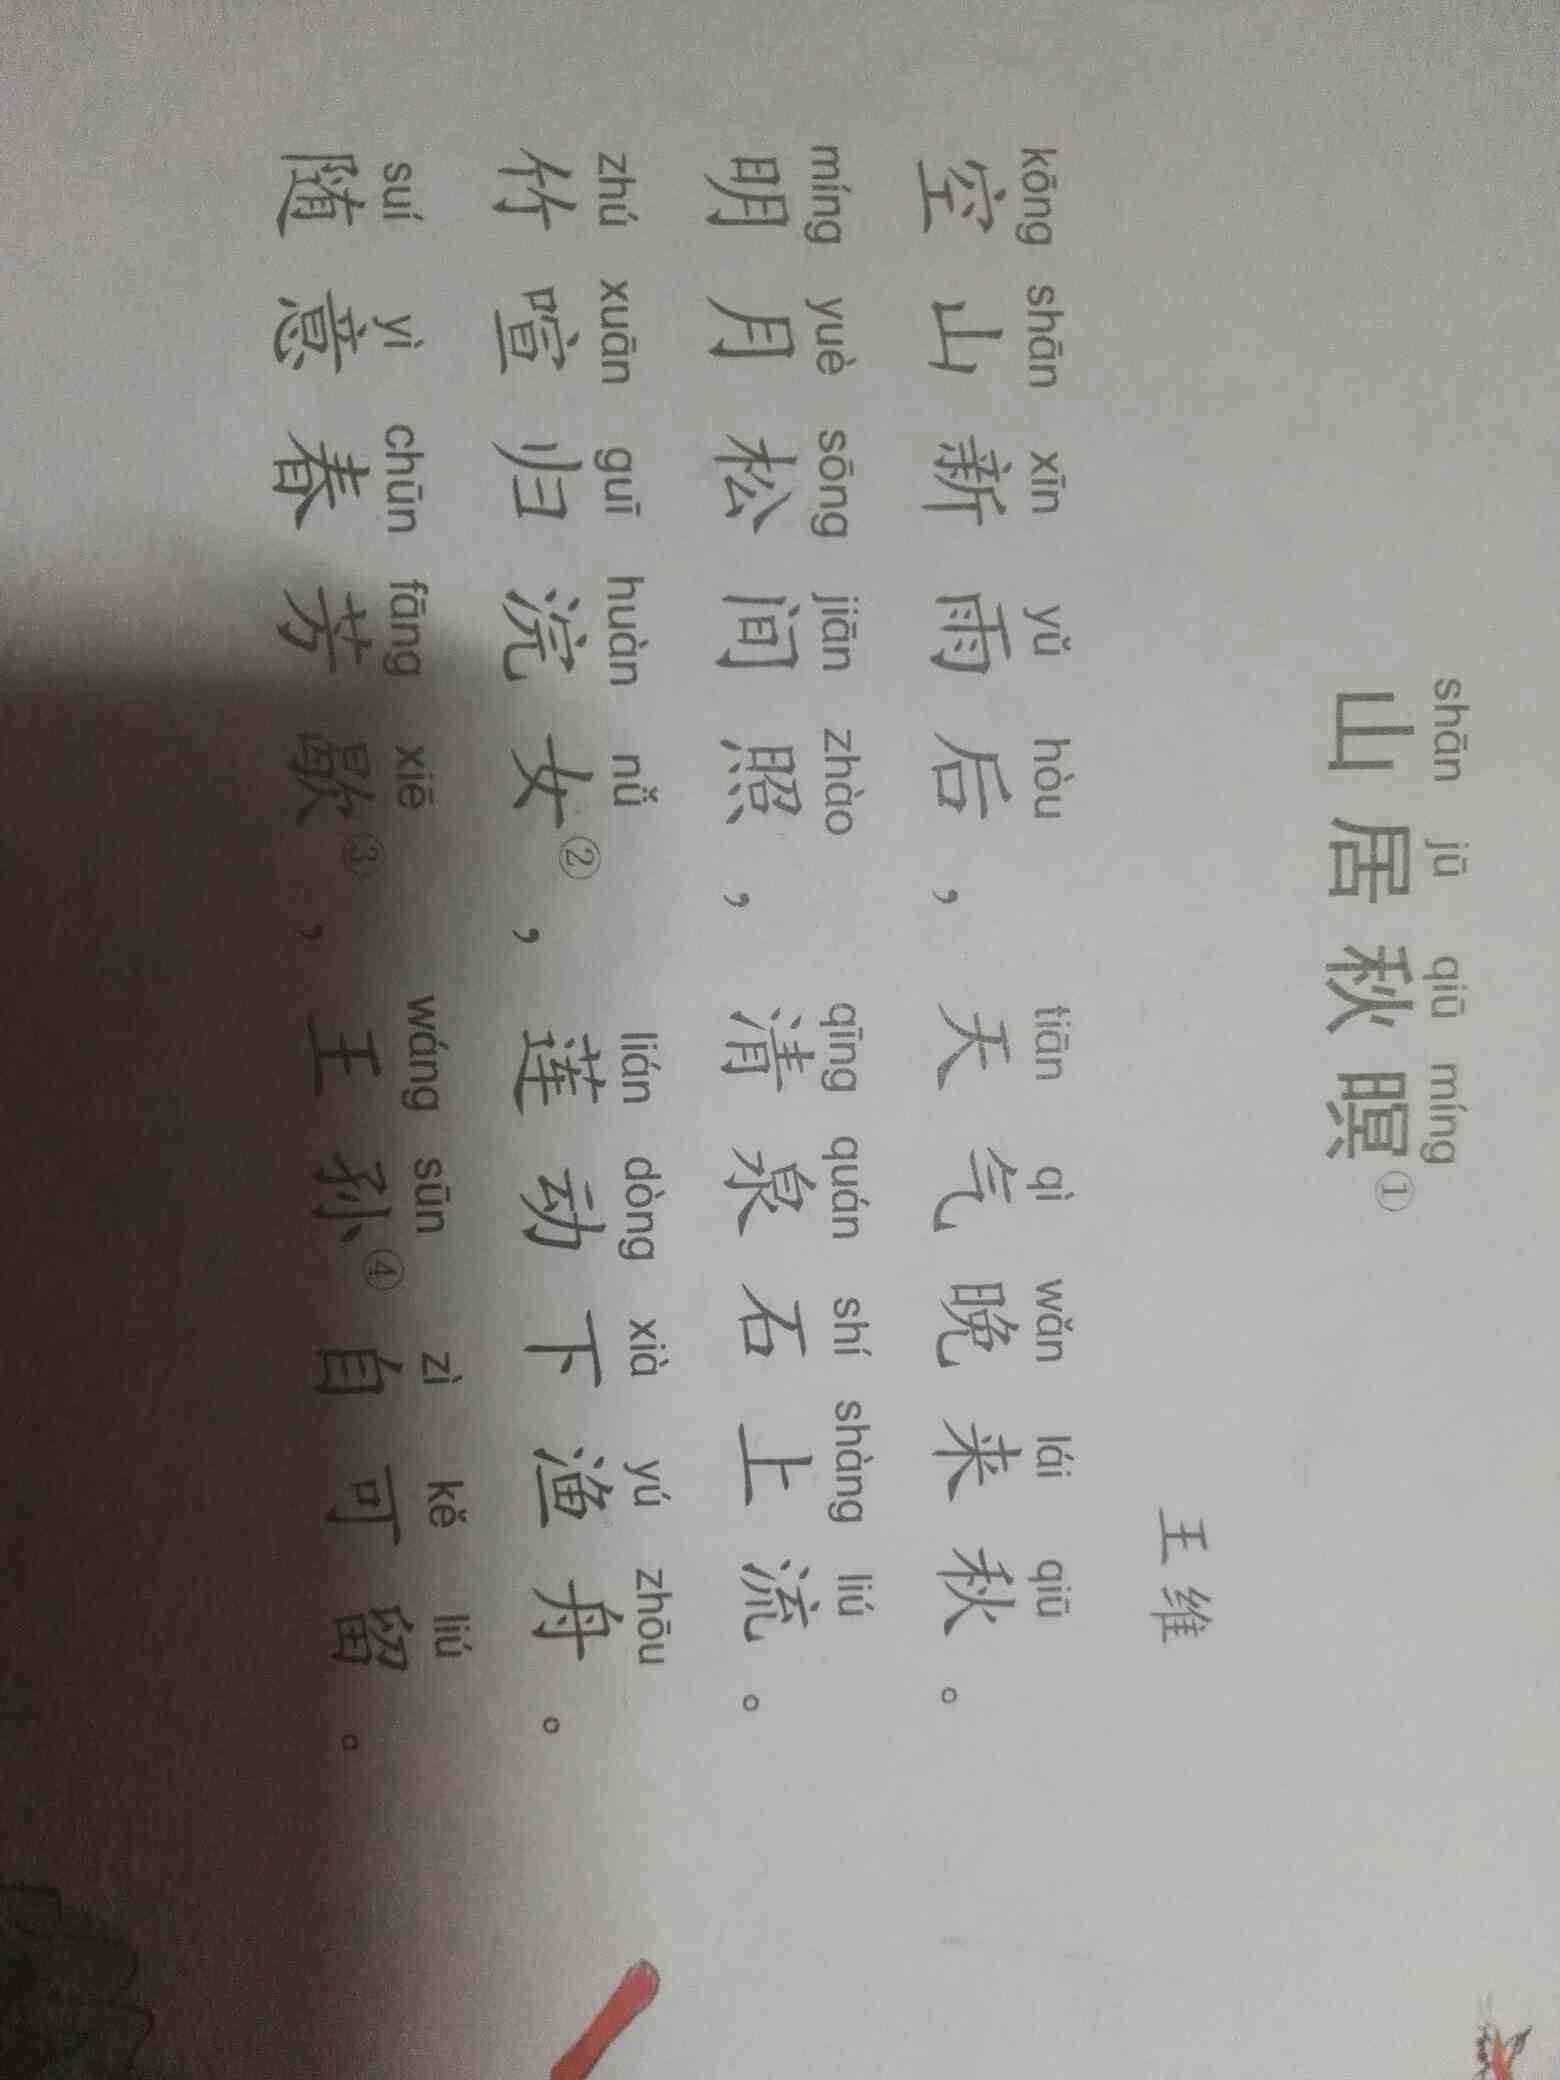 shān jū qiū míng
山居秋暝①
王维
kōng shān xīn yǔ hòu tiān qì wǎn lái qiū
空山新雨后，天气晚来秋。
míng yuè sōng jiān zhào qīng quán shí shàng liú
明月松间照，清泉石上流。
zhú xuān guī huàn nǚ lián dòng xià yú zhōu
竹喧归浣女②，莲动下渔舟。
suí yì chūn fāng xiē wáng sūn zì kě liú
随意春芳歇③，王孙④自可留。